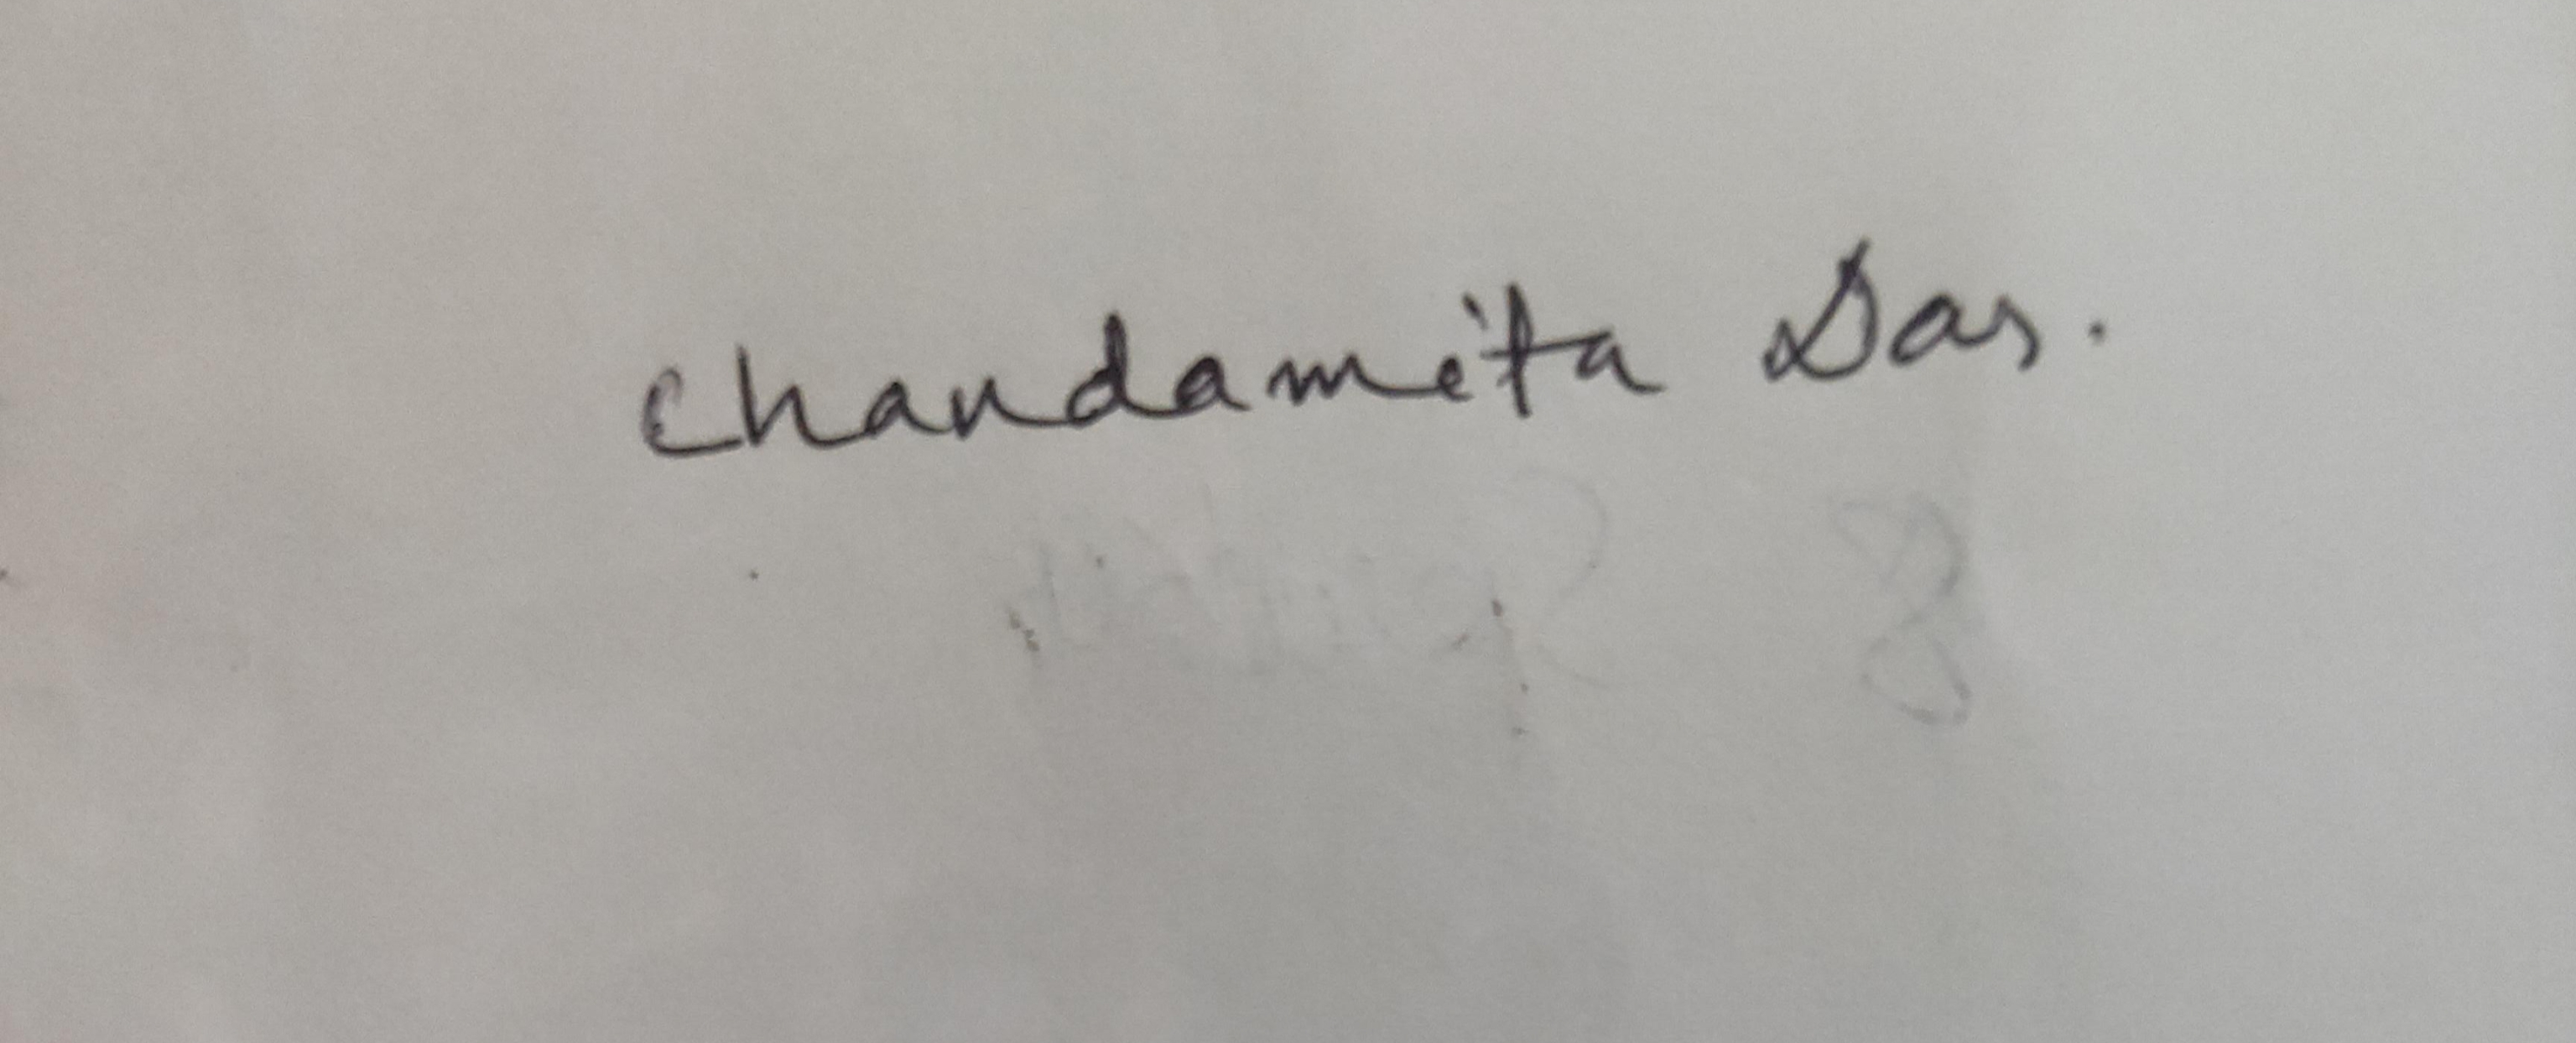 Chandamita Das.